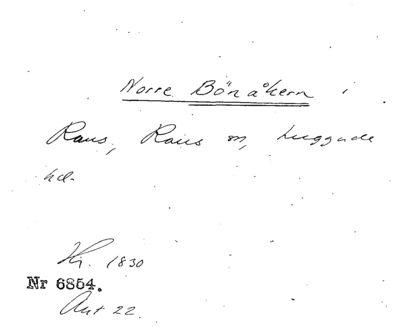 Norre Bönåkern i
Raus, Raus sn, Luggude
hd.
Kr. 1830
Nr 6854.
Akt 22.